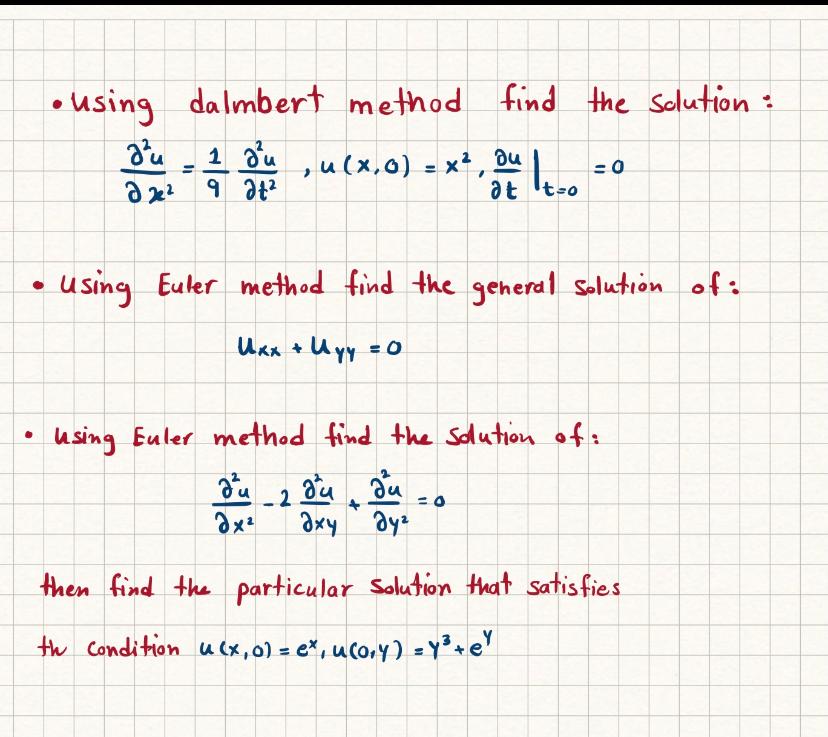 • using dalmbert method find the solution:
∂²u/∂x² = 1/9 ∂²u/∂t² , u(x,0) = x², ∂u/∂t |t=0 = 0
• using Euler method find the general solution of:
uxx + uyy = 0
• using Euler method find the solution of:
∂²u/∂x² - 2 ∂²u/∂xy + ∂²u/∂y² = 0
then find the particular solution that satisfies
th condition u(x,0) = eˣ, u(0,y) = y³ + eʸ